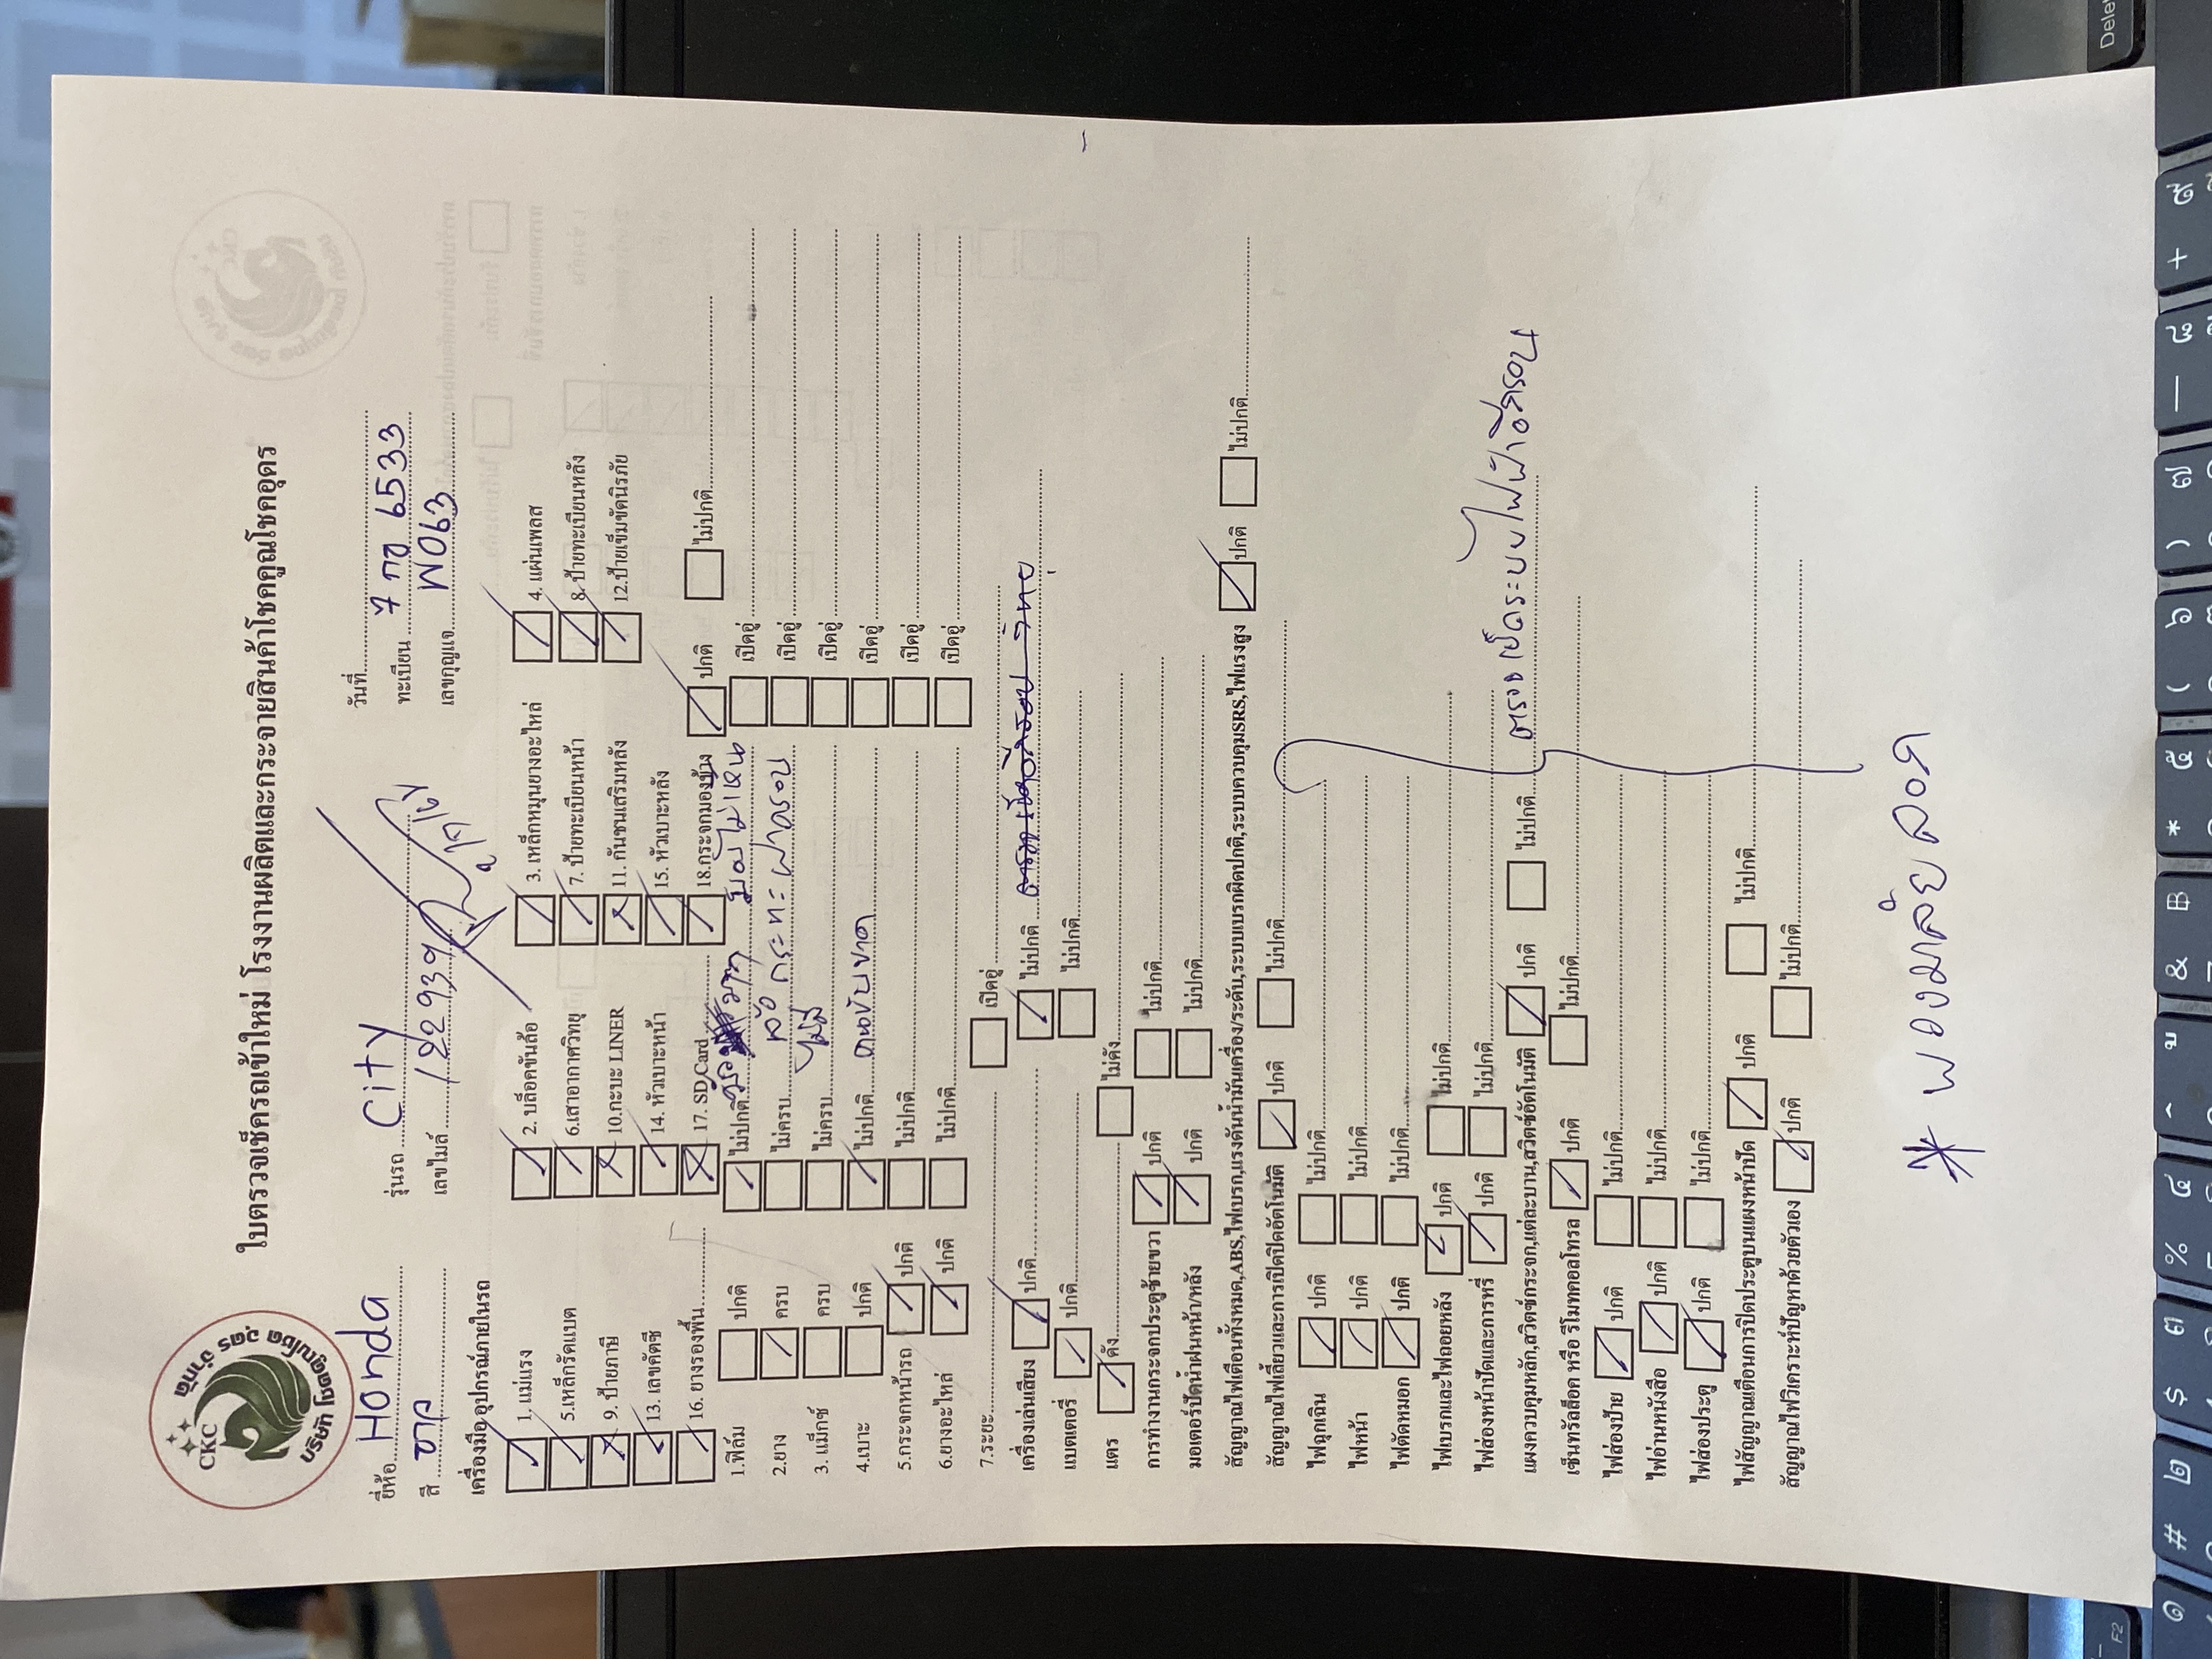 CKC
บริษัท โชคคูณโชค อุดร จำกัด
ใบตรวจเช็ครถเข้าใหม่ โรงงานผลิตและกระจายสินค้าโชคคูณโชคอุดร
ยี่ห้อ Honda รุ่นรถ City วันที่
สี ขาว เลขไมล์ 122939 ทะเบียน 7 กข 6533
เลขกุญแจ W063
เครื่องมือ อุปกรณ์ภายในรถ
1. แม่แรง 2. บล็อคขันล้อ 3. เหล็กหมุนยางอะไหล่ 4. แผ่นเพลส
5.เหล็กรัดแบต 6.เสาอากาศวิทยุ 7. ป้ายทะเบียนหน้า 8. ป้ายทะเบียนหลัง
9. ป้ายภาษี 10.กะบะ LINER 11. กันชนเสริมหลัง 12.ป้ายเข็มขัดนิรภัย
13. เลขคัตซี 14. หัวเบาะหน้า 15. หัวเบาะหลัง
16. ยางรองพื้น 17. SD Card 18.กระจกมองข้าง ปกติ ไม่ปกติ
1.ฟิล์ม ปกติ ไม่ปกติ มองไม่เห็น เปิดอู่
2.ยาง ครบ ไม่ครบ เปิดอู่
3. แม็กซ์ ครบ ไม่ครบ ไม่มี เปิดอู่
4.เบาะ ปกติ ไม่ปกติ คนขับขาด เปิดอู่
5.กระจกหน้ารถ ปกติ ไม่ปกติ เปิดอู่
6.ยางอะไหล่ ปกติ ไม่ปกติ เปิดอู่
7.ระยะ เปิดอู่
เครื่องเล่นเสียง ปกติ ไม่ปกติ
แบตเตอรี่ ปกติ ไม่ปกติ
แตร ดัง ไม่ดัง
การทำงานกระจกประตูซ้ายขวา ปกติ ไม่ปกติ
มอเตอร์ปัดน้ำฝนหน้า/หลัง ปกติ ไม่ปกติ
สัญญาณไฟเตือนทั้งหมด,ABS,ไฟเบรก,แรงดันน้ำมันเครื่อง/ระดับ,ระบบเบรกผิดปกติ,ระบบควบคุมSRS,ไฟแรงสูง ปกติ ไม่ปกติ
สัญญาณไฟเลี้ยวและการเปิดปิดอัตโนมัติ ปกติ ไม่ปกติ
ไฟฉุกเฉิน ปกติ ไม่ปกติ
ไฟหน้า ปกติ ไม่ปกติ
ไฟตัดหมอก ปกติ ไม่ปกติ
ไฟเบรกและไฟถอยหลัง ปกติ ไม่ปกติ
ไฟส่องหน้าปัดและการหรี่ ปกติ ไม่ปกติ
แผงควบคุมหลัก,สวิตช์กระจก,แต่ละบาน,สวิตช์อัตโนมัติ ปกติ ไม่ปกติ ตรวจเช็คระบบไฟฟ้าอีกรอบ
เซ็นทรัลล็อค หรือ รีโมทคอลโทรล ปกติ ไม่ปกติ
ไฟส่องป้าย ปกติ ไม่ปกติ
ไฟอ่านหนังสือ ปกติ ไม่ปกติ
ไฟส่องประตู ปกติ ไม่ปกติ
ไฟสัญญาณเตือนการปิดประตูบนแผงหน้าปัด ปกติ ไม่ปกติ
สัญญาณไฟวิเคราะห์ปัญหาด้วยตัวเอง ปกติ ไม่ปกติ
* พวงมาลัยลอก